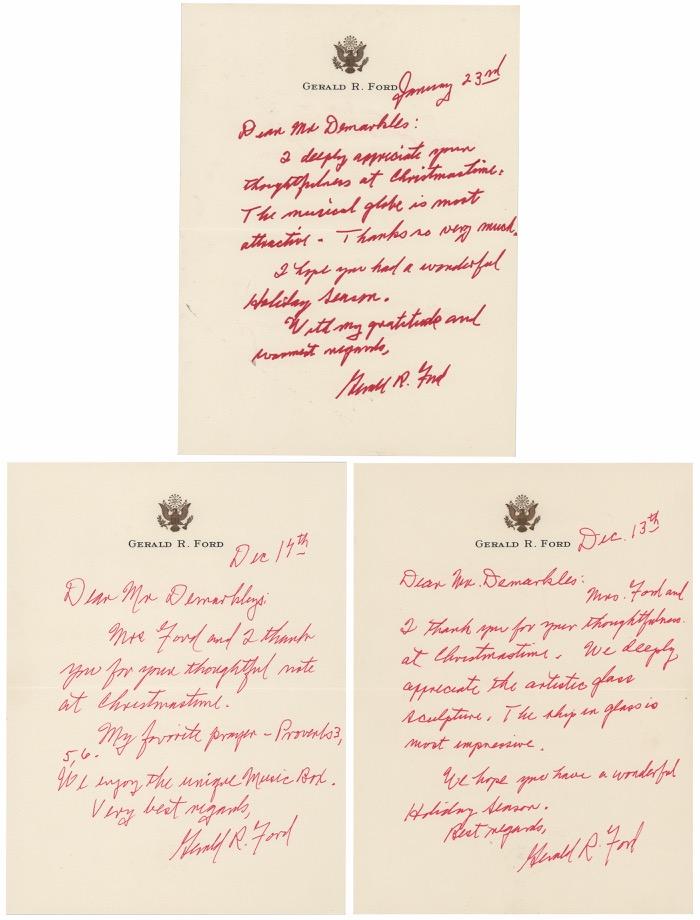 GERALD R. FORD
January 23rd
Dear Mr Demarkles:
I deeply appreciate your
thoughtfulness at Christmastime.
The musical globe is most
attractive - Thanks so very much.
I hope you had a wonderful
Holiday Season.
With my gratitude and
warmest regards,
Gerald R. Ford
GERALD R. FORD
Dec 14th
Dear Mr Demarkleys;
Mrs Ford and I thank
you for your thoughtful note
at Christmastime.
My favorite prayer - Proverbs 3,
5,6.
We enjoy the unique Music Box.
Very best regards,
Gerald R. Ford
GERALD R. FORD
Dec. 13th
Dear Mr. Demarkles:
Mrs. Ford and
I thank you for your thoughtfulness
at Christmastime. We deeply
appreciate the artistic glass
sculpture. The ship in glass is
most impressive.
We hope you have a wonderful
Holiday Season.
Best regards,
Gerald R. Ford